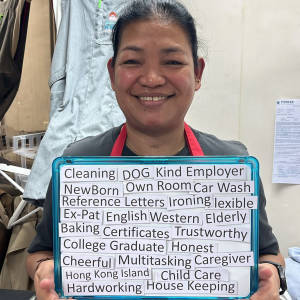 Cleaning DOG Kind Employer
NewBorn Own Room Car Wash
Reference Letters Ironing lexible
Ex-Pat English Western Elderly
Baking Certificates Trustworthy
College Graduate Honest
Cheerful Multitasking Caregiver
Hong Kong Island Child Care
Hardworking House Keeping